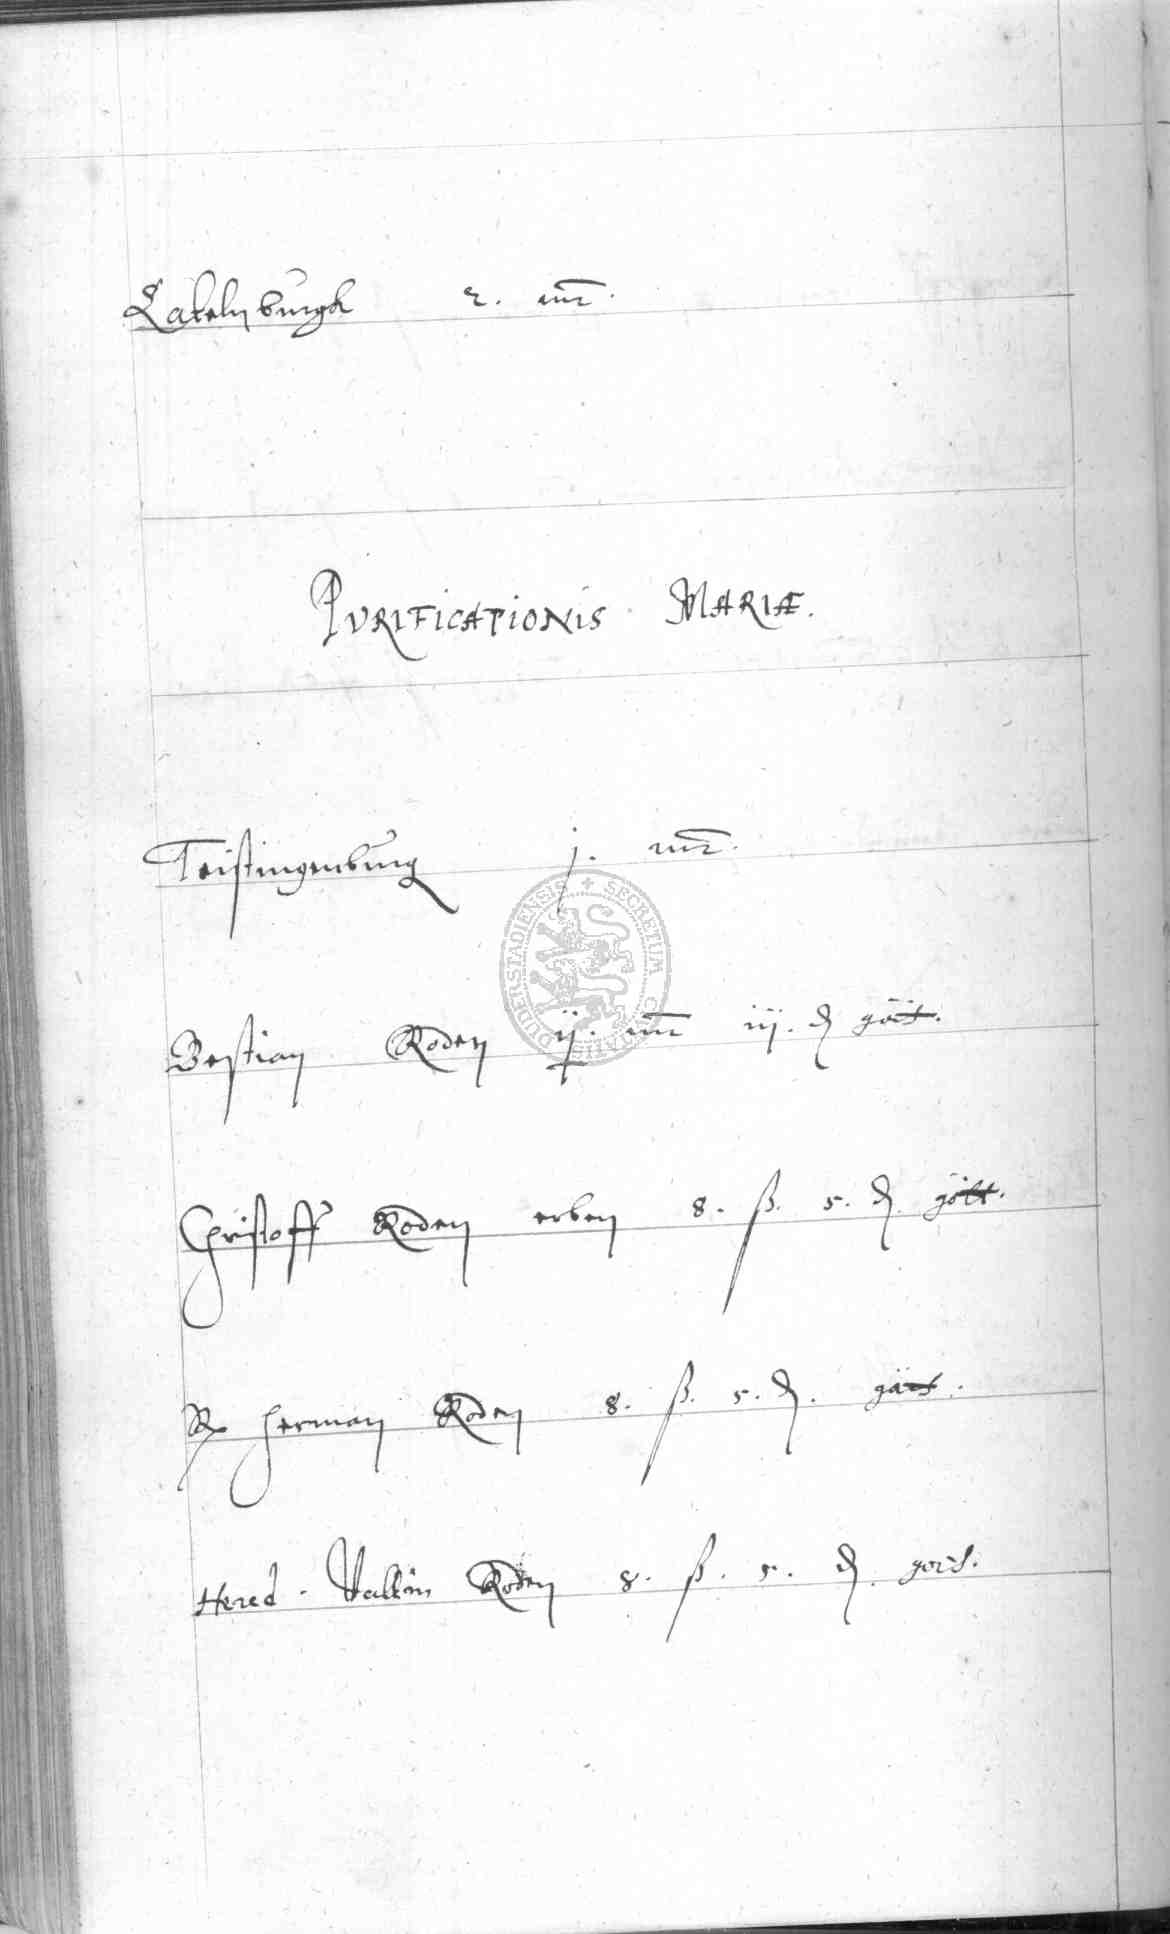 Catelnburgh 2. mr.
PVRIFICATIONIS MARIÆ.
Teistingenburg j. mr.
DUDERSTADIENSIS + SECRETUM CIVITATIS
Bestian Roden ij. mr iij. ₰ gött.
Christoff Roden erben 8. ß. 5. ₰ gött.
Herman Roden 8. ß. 5. ₰. gött.
Hered. Roden 8. ß. 5. ₰. gött.